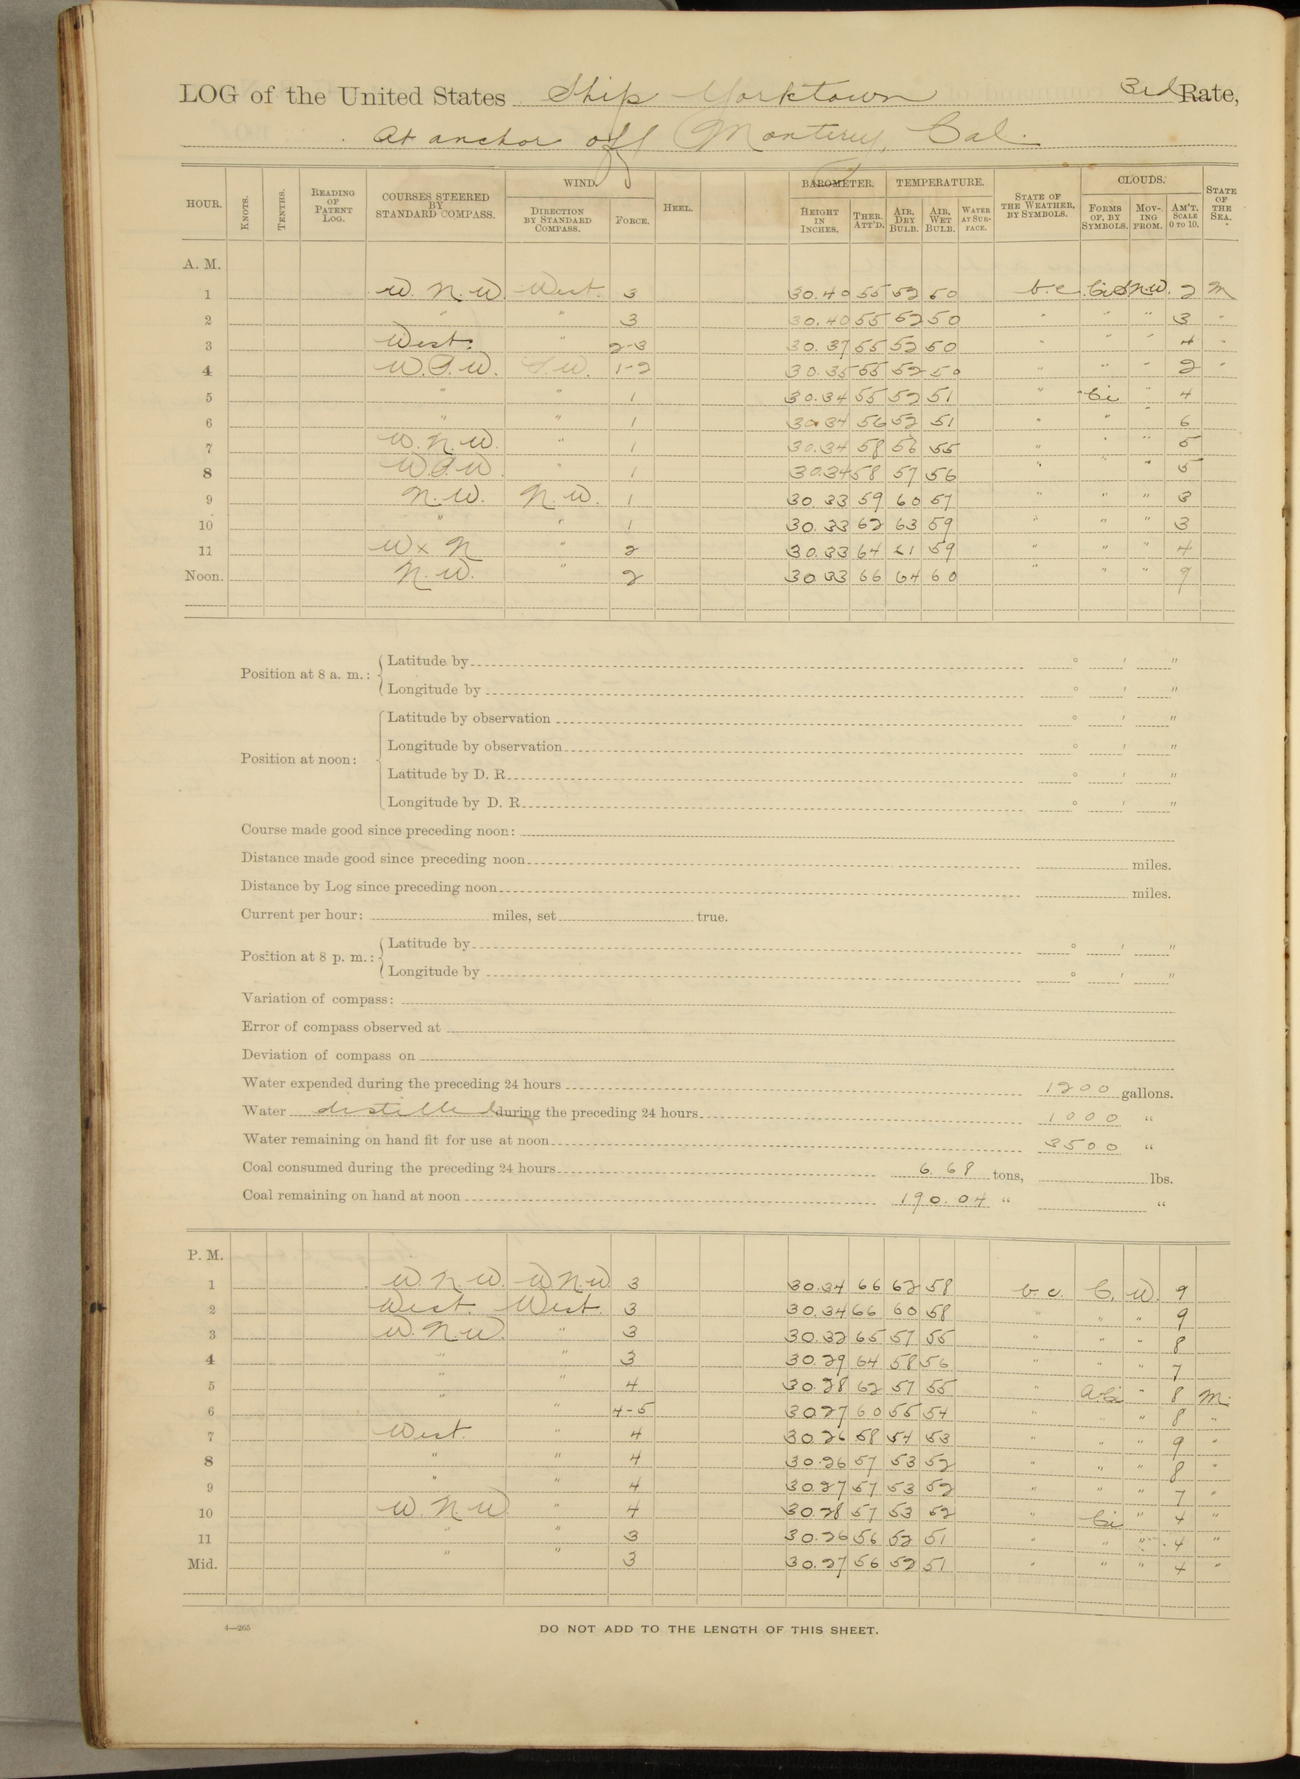 LOG of the United States Ship Yorktown 3rd Rate,
At anchor off Monterey, Cal.
HOUR. KNOTS. TENTHS. READING OF PATENT LOG. COURSES STEERED BY STANDARD COMPASS. WIND. DIRECTION BY STANDARD COMPASS. FORCE. HEEL. BAROMETER. HEIGHT IN INCHES. THER. ATT'D. TEMPERATURE. AIR, DRY BULB. AIR, WET BULB. WATER AT SURFACE. STATE OF THE WEATHER, BY SYMBOLS. CLOUDS. FORMS OF, BY SYMBOLS. MOVING FROM. AM'T. SCALE 0 TO 10. STATE OF THE SEA.
A. M.
1 W. N. W. West. 3 30.40 55 52 50 b.c. N.W. 2 M
2 " " 3 30.40 55 52 50 " " " 3 "
3 West. " 2-3 30.37 55 52 50 " " " 4 "
4 W.S.W. S.W. 1-2 30.35 55 52 50 " " " 2 "
5 " " 1 30.34 55 52 51 " Ci " 4
6 " " 1 30.34 56 52 51 " " " 6
7 W. N. W. " 1 30.34 58 56 55 " " " 5
8 W.S.W. " 1 30.34 58 57 56 " " " 5
9 N. W. N. W. 1 30.33 59 60 57 " " " 3
10 " " 1 30.33 62 63 59 " " " 3
11 W x N " 2 30.33 64 61 59 " " " 4
Noon. N. W. " 2 30.33 66 64 60 " " " 9
Position at 8 a. m.: Latitude by ° ′ ″
Longitude by ° ′ ″
Position at noon: Latitude by observation ° ′ ″
Longitude by observation ° ′ ″
Latitude by D. R. ° ′ ″
Longitude by D. R. ° ′ ″
Course made good since preceding noon:
Distance made good since preceding noon miles.
Distance by Log since preceding noon miles.
Current per hour: miles, set true.
Position at 8 p. m.: Latitude by ° ′ ″
Longitude by ° ′ ″
Variation of compass:
Error of compass observed at
Deviation of compass on
Water expended during the preceding 24 hours 1200 gallons.
Water distilled during the preceding 24 hours 1000 "
Water remaining on hand fit for use at noon 3500 "
Coal consumed during the preceding 24 hours 6.68 tons, lbs.
Coal remaining on hand at noon 190.04 " "
P. M.
1 W. N. W. W.N.W. 3 30.34 66 62 58 b.c. C. W. 9
2 West. West. 3 30.34 66 60 58 " " " 9
3 W. N. W. " 3 30.32 65 57 55 " " " 8
4 " " 3 30.29 64 58 56 " " " 7
5 " " 4 30.28 62 57 55 " " 8 M.
6 " " 4-5 30.27 60 55 54 " " " 8 "
7 West. " 4 30.26 58 54 53 " " " 9 "
8 " " 4 30.26 57 53 52 " " " 8 "
9 " " 4 30.27 57 53 52 " " " 7 "
10 W. N. W. " 4 30.28 57 53 52 " Ci " 4 "
11 " " 3 30.26 56 52 51 " " " 4 "
Mid. " " 3 30.27 56 52 51 " " " 4 "
4—265
DO NOT ADD TO THE LENGTH OF THIS SHEET.